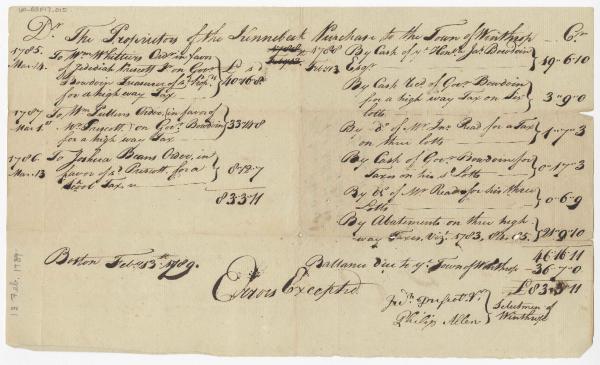 Dr. The Proprietors of the Kennebeck Purchase to the Town of Winthrop Cr
1785 To Wm Whittiers Order in favor
Mar. 14. Jedediah Prescott Jr on Govr
Bowdoin Treasurer of sd Propts
for a high way Tax
£ s d
40-16-8
1787 To Wm Pullens Order, in favor of
Mar 1st Wm Prescott, on Govr Bowdoin
for a high way Tax
33-14-8
1786 To Joshua Beans Order, in
Mar. 13 favor of sd Prescott, for a
Tax
8-12-7
83-3-11
1788 1788 By Cash of ye Honble Jas Bowdoin
Esqr
19-6-10
By Cash of Govr Bowdoin
for a high way Tax on his
Lotts
3-9-0
By do of Mr Jno Read for a Tax
on three lotts
1-7-3
By Cash of Govr Bowdoin for
Taxes on his sd Lotts
0-17-3
By do of Mr Read for his three
Lotts
0-6-9
By Abatements on three high
way Taxes, Viz. 1783, 84, 85.
21-9-10
46-16-11
Ballance Due to ye Town of Winthrop 36-7-0
£83-3-11
Boston Feby 13th 1789.
Errors Excepted
Jedh Prescot Jr
Philip Allen
Selectmen of
Winthrop
13 Feb. 1789